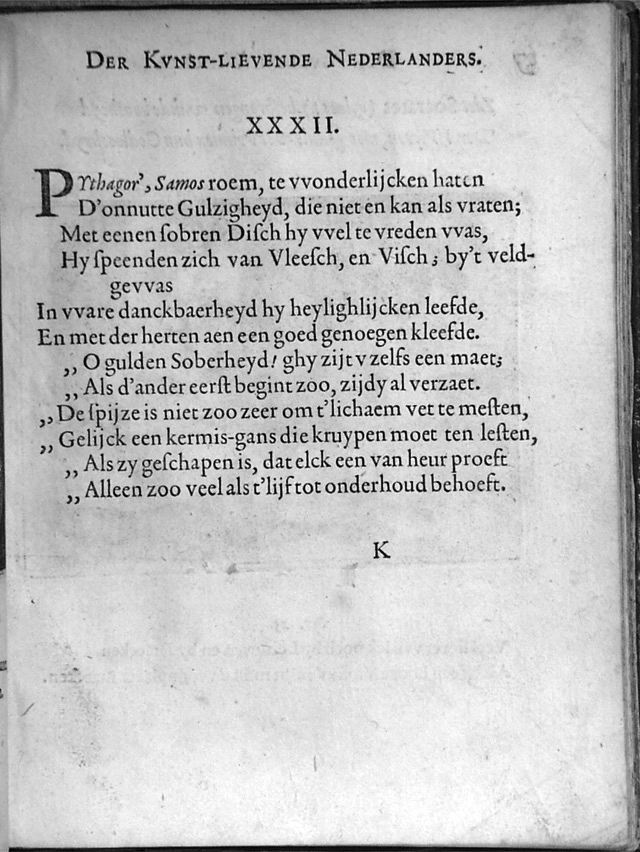 DER KVNST-LIEVENDE NEDERLANDERS.
XXXII.
PYthagor', Samos roem, te vvonderlijcken haten
D'onnutte Gulzigheyd, die niet en kan als vraten;
Met eenen ſobren Diſch hy vvel te vreden vvas,
Hy ſpeenden zich van Vleeſch, en Viſch; by't veld-
gevvas
In vvare danckbaerheyd hy heylighlijcken leefde,
En met der herten aen een goed genoegen kleefde.
,, O gulden Soberheyd! ghy zijt v zelfs een maet;
,, Als d'ander eerſt begint zoo, zijdy al verzaet.
,, De ſpijze is niet zoo zeer om t'lichaem vet te meſten,
,, Gelijck een kermis-gans die kruypen moet ten leſten,
,, Als zy geſchapen is, dat elck een van heur proeft
,, Alleen zoo veel als t'lijf tot onderhoud behoeft.
K